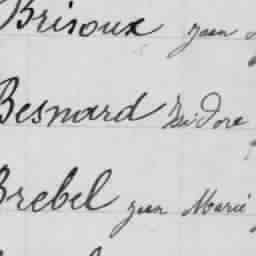 Brisoux Jean
Besnard Isidore
Brebel Jean Marie